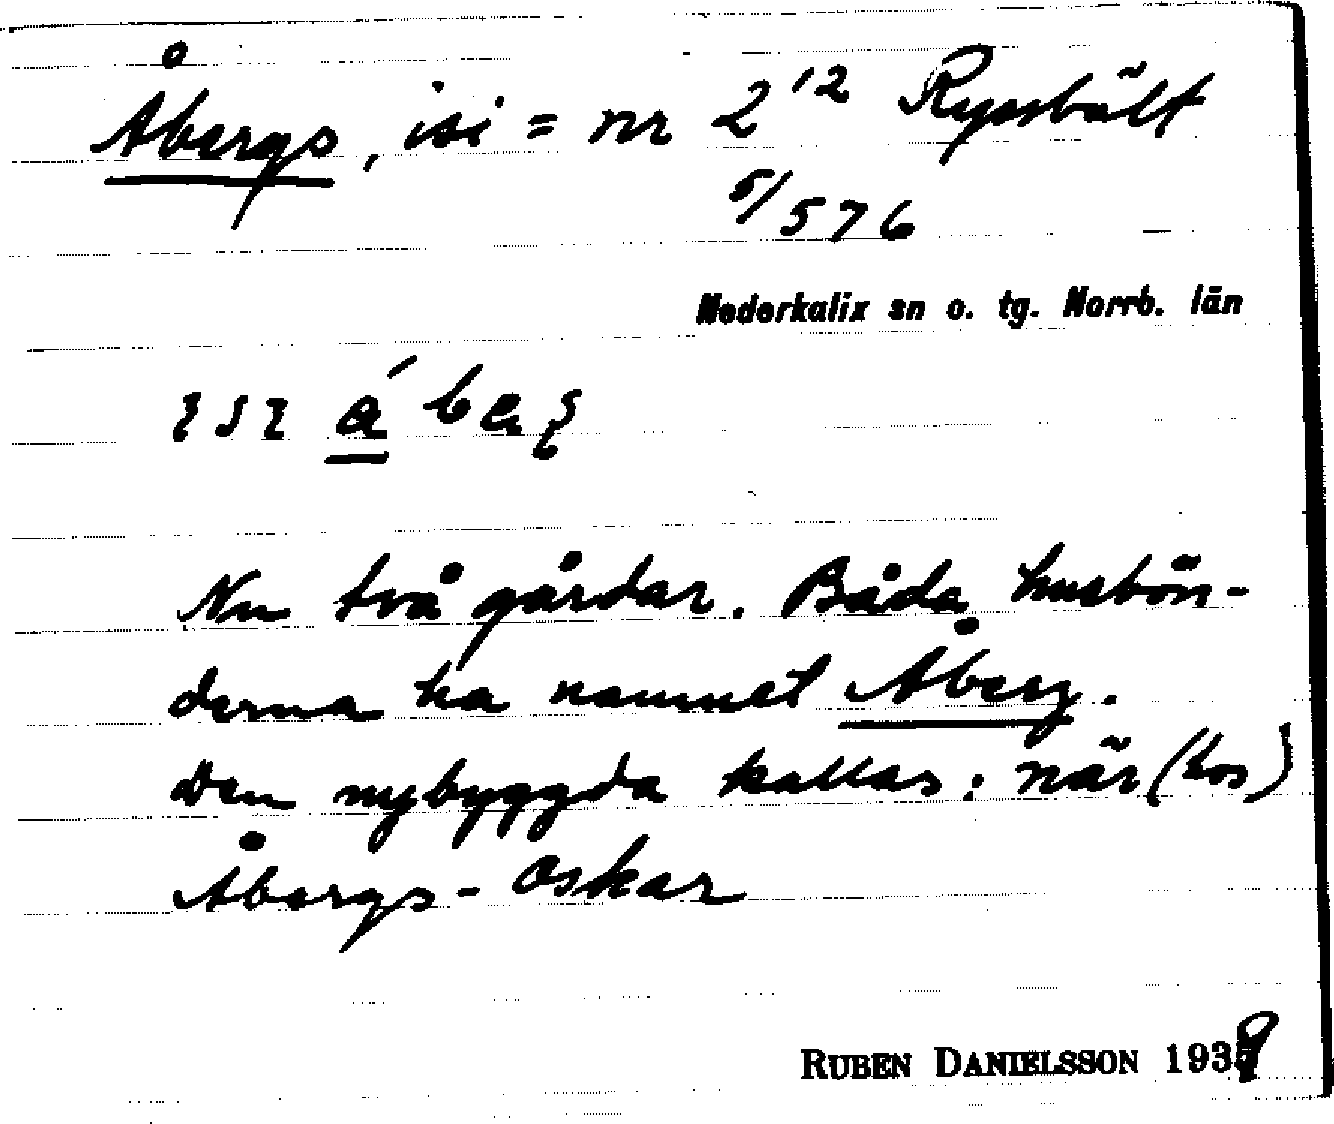 Åbergs, isi = nr 2¹² Ryssbält
5/576
Nederkalix sn o. tg. Norrb. län
Nu två gårdar. Båda husbön-
derna ha namnet Åberg.
Den nybyggda kallas: när (hos)
Åbergs-Oskar
RUBEN DANIELSSON 1939